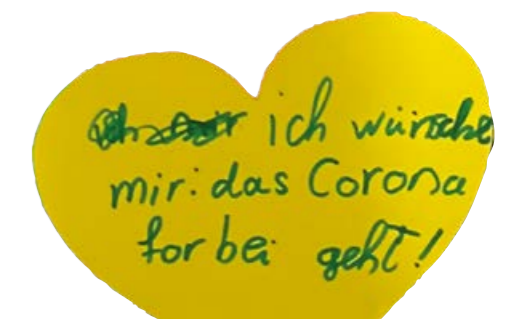 ich wünsche
mir: das Corona
forbei geht!